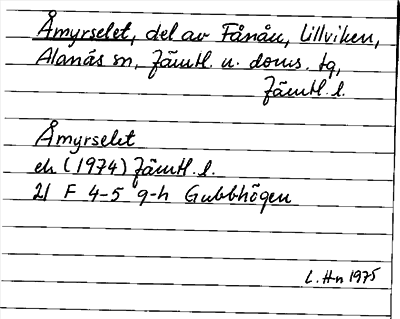 Åmyrselet, del av Fånån, Lillviken,
Alanäs sn, Jämtl. n. doms. tg,
Jämtl. l.
Åmyrselet
ek (1974) Jämtl. l.
21 F 4-5 g-h Gubbhögen
L. Hn 1975